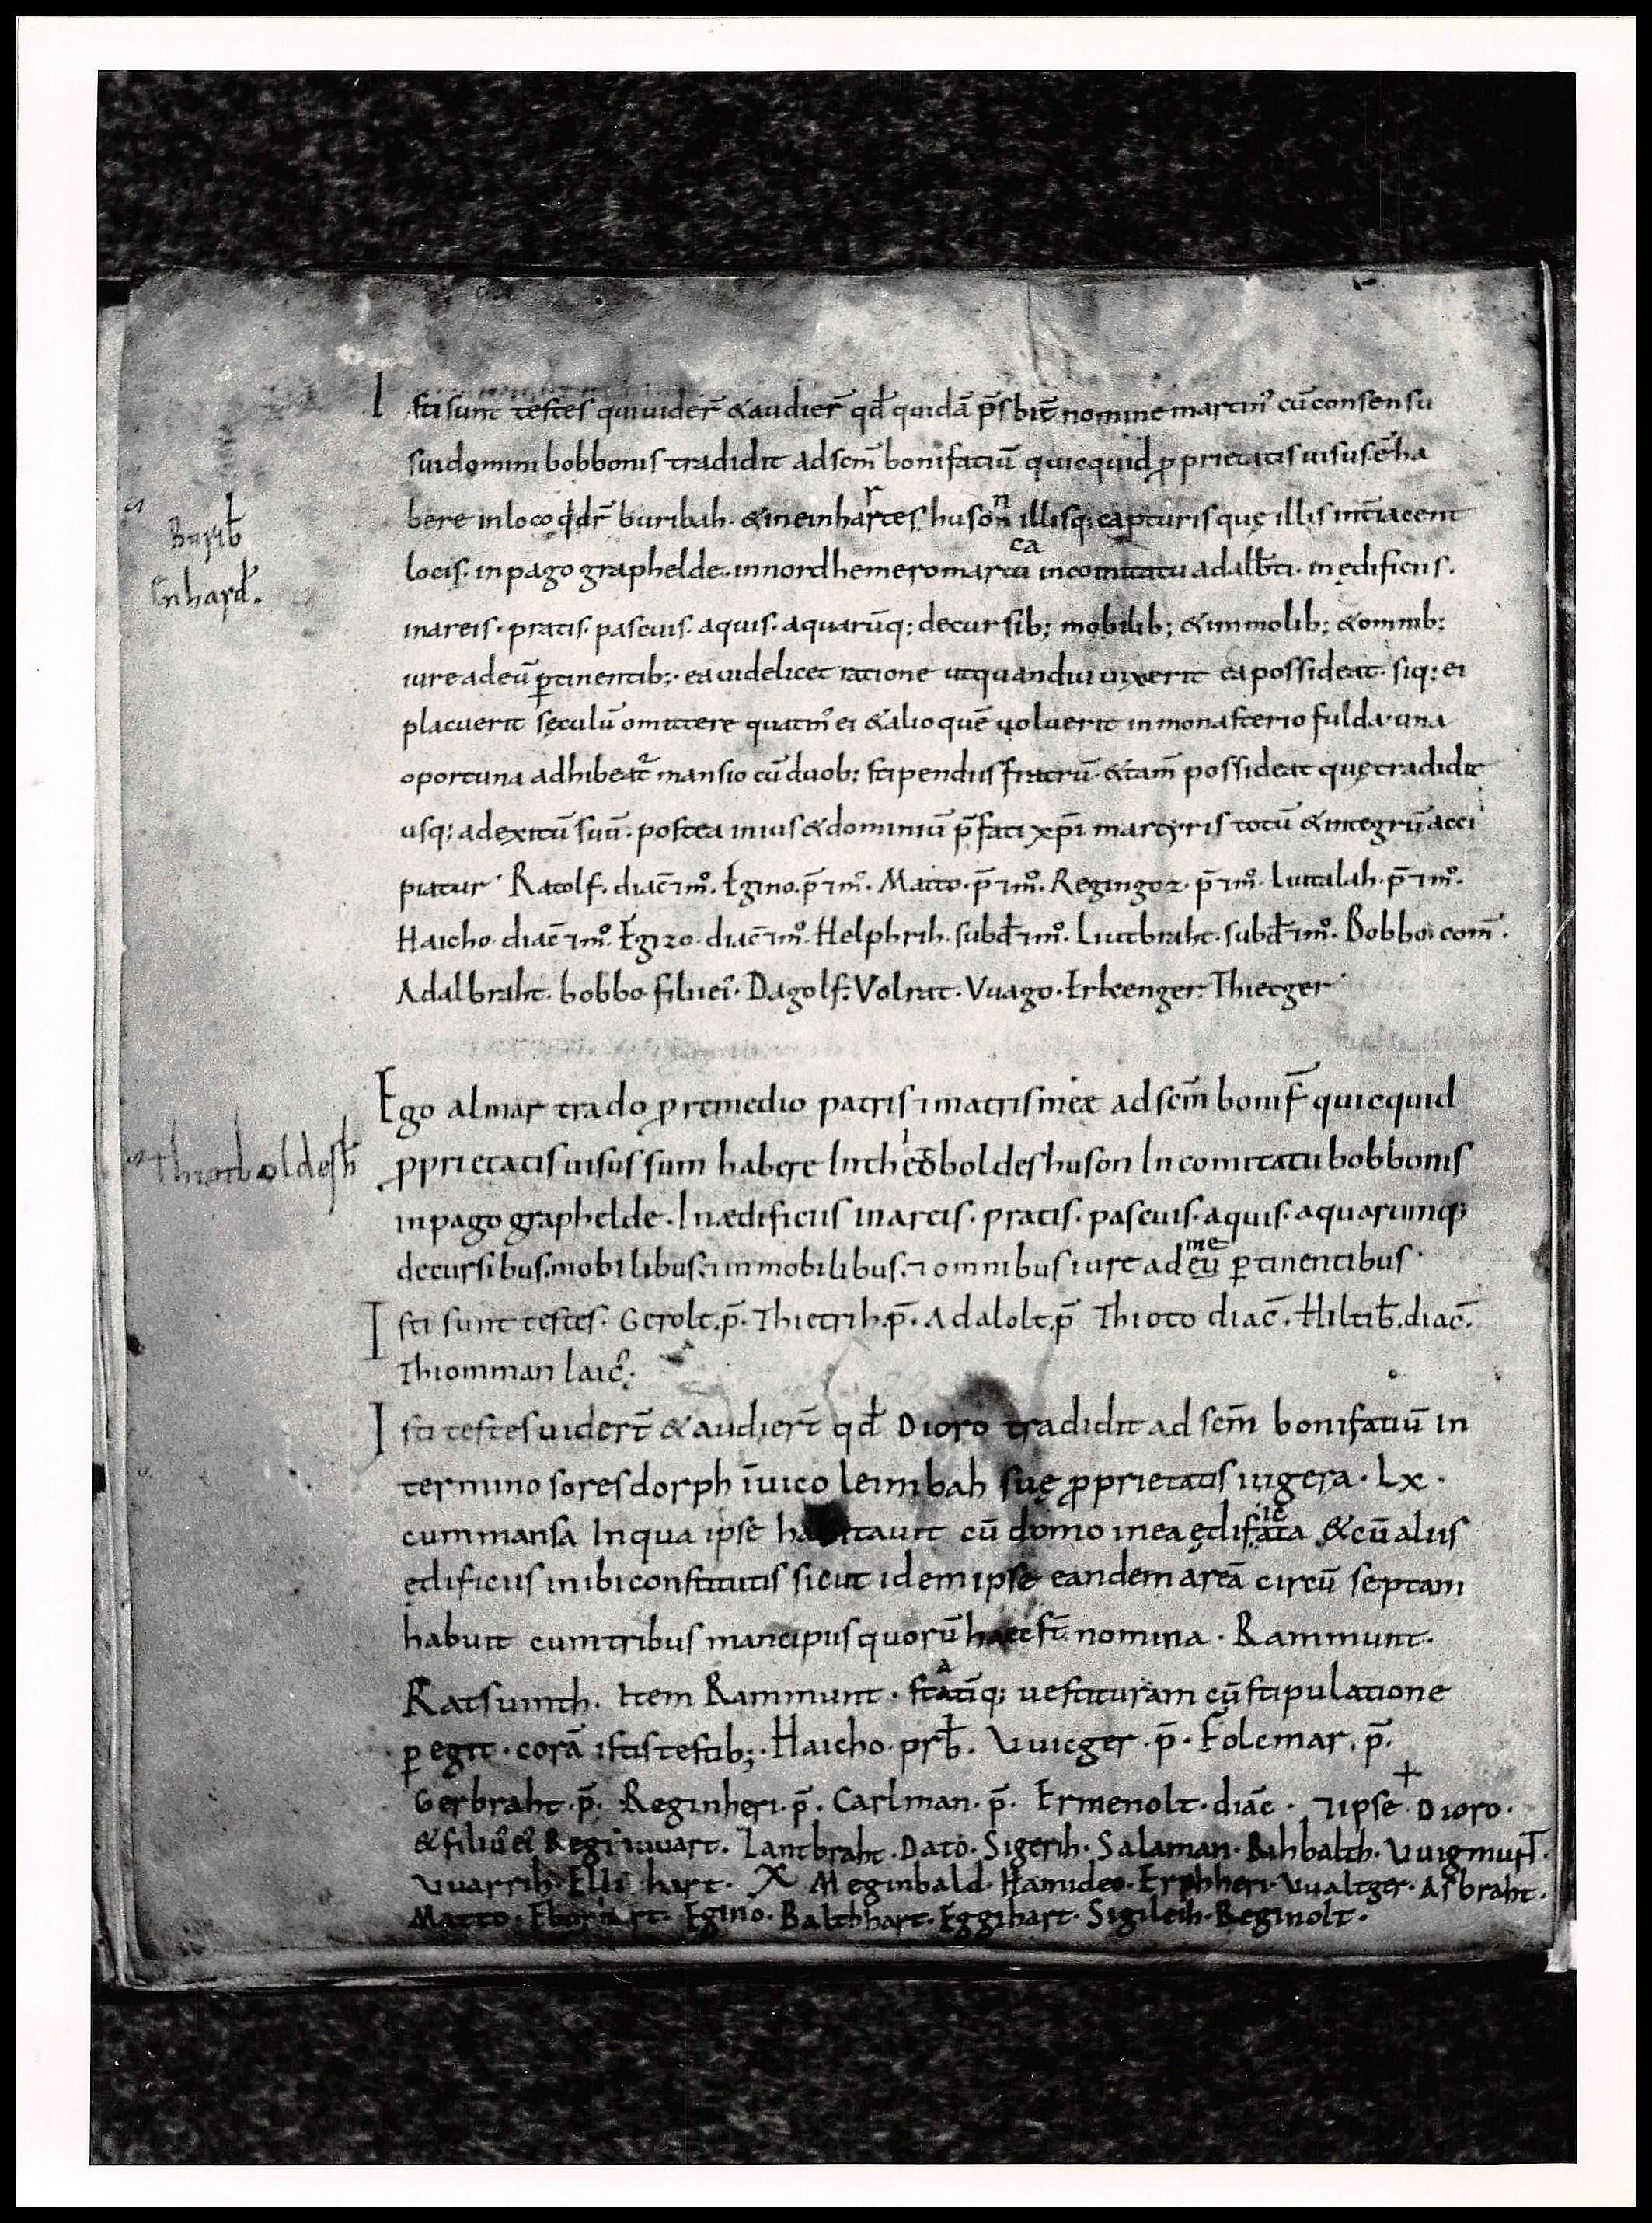 Isti sunt testes qui uider̄ & audier̄ qđ quidā p̄sbit̄ nomine martin᾿ cū consensu
sui domini bobbonis tradidit ad scm̄ bonifatiū quicquid ꝓprietatis uisus ē ha
bere in loco qđdr̄ buribah · & in einhartes huson illisq; capturis quę illis int̄iacent
Burib̄
locis · in pago graphelde · in nordhemeromarcu in comitatu adalb̄ti · in ędificiis ·
ca
Einhard̄.
in areis · pratis · pascuis · aquis · aquarūq; decursib; mobilib; & inmolib; & omnib;
iure ad eū ꝑtinentib; · ea uidelicet ratione ut quandiu uixerit ea possideat · siq; ei
placuerit sęculū omittere quatin᾿ ei & alio quē uoluerit in monasterio fulda · una
oportuna adhibeat᾿ mansio cū duob; stipendiis fratrū · & tam̄ possideat quę tradidit
usq; ad exitū suū · postea in ius & dominiū p̄fati xp̄i martyris totū & integrū acci
piatur · Ratolf · diac̄ ⁊ mo · Egino · p̄ ⁊ mo · Matto · p̄ ⁊ mo · Regingoz · p̄ ⁊ mo · Liutalah · p̄ ⁊ mo ·
Haicho · diac̄ ⁊ mo · Egizo · diac̄ ⁊ mo · Helphrih · subđ ⁊ mo · Liutbraht · subđ ⁊ mo · Bobbo com̄ ·
Adalbraht · bobbo filiuei᾿ · Dagolf · Volrat · Vuago · Erkenger · Thietger
Ego almar trado ꝓ remedio patris ⁊ matris meæ ad scm̄ bonif̄ quicquid
ꝓprietatis uisus sum habere In theoboldeshuson In comitatu bobbonis
Thiotboldesh̄
in pago graphelde · In ædificiis in areis · pratis · pascuis · aquis · aquarumq;
decursibus · mobilibus · ⁊ inmobilibus · ⁊ omnibus iure ad eū ꝑtinentibus ·
me
Isti sunt testes · Gerolt · p̄ · Thietrih · p̄ · Adalolt · p̄ Thioto diac̄ · Hiltib̄ · diac̄ ·
Thiomman laic᾿ ·
Isti testes uidert̄ & audiert̄ qđ Dioro tradidit ad scm̄ bonifatiū in
termino soresdorph īuico leimbah suę ꝓprietatis iugera · Lx ·
cum mansa In qua ipse habitauit cū domo in ea ędifata & cū aliis
ic
ędificiis inibi constitutis sicut idem ipse eandem areā circū septam
habuit cum tribus mancipiis quorū haec st̄ nomina · Rammunt ·
Ratsuinth · Item Rammunt · statiq; uestituram cū stipulatione
ꝑegit · corā istis testib; · Haicho · prb̄ · Vuicger · p̄ · Folcmar · p̄ ·
Gerbraht · p̄ · Reginheri · p̄ · Carlman · p̄ · Ermenolt · diāc · ⁊ ipse Dioro ·
& filiu᾿ ei᾿ Reginuuart · Lantbraht · Dato · Sigerih · Salaman · Rihbalth · Vuigmunt ·
Vuarrih · Elli hart · X Meginbald · Hamideo · Erphheri · Vualtger · Asbraht ·
Matto · Eburhart · Egino · Balthhart · Eggihart · Sigileih · Reginolt ·